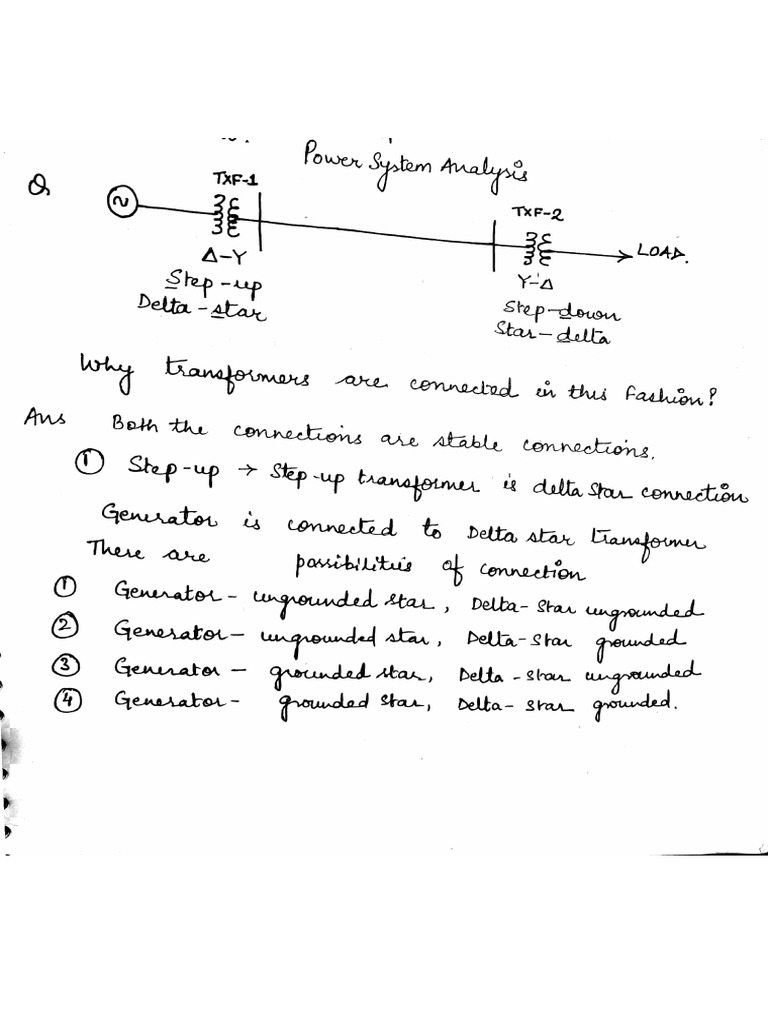 Power System Analysis
Q
TXF-1
TXF-2
LOAD.
Δ-Y
Y-Δ
Step-up
Step-down
Delta-star
Star-delta
Why transformers are connected in this fashion?
Ans Both the connections are stable connections.
① Step-up → Step-up transformer is delta star connection
Generator is connected to Delta star transformer
There are possibilities of connection
① Generator - ungrounded star, Delta-star ungrounded
② Generator - ungrounded star, Delta-star grounded
③ Generator - grounded star, Delta-star ungrounded
④ Generator - grounded star, Delta-star grounded.